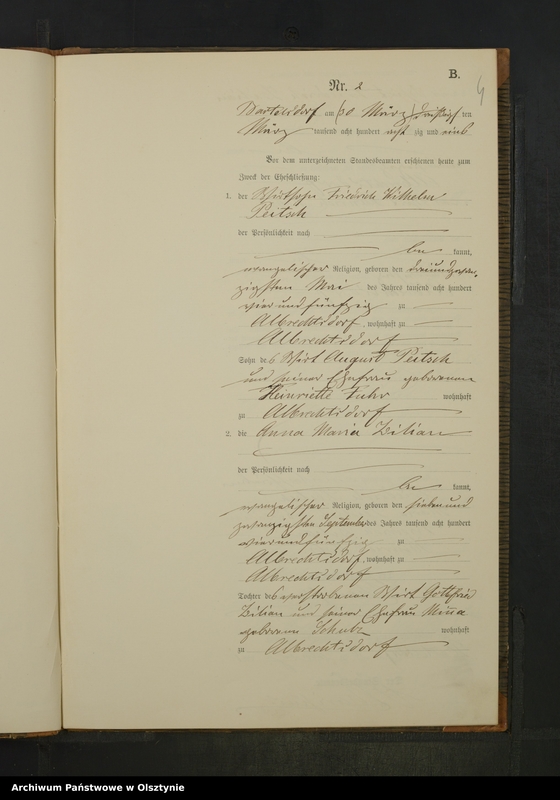 B.
4
Nr. 2
Bartelsdorf am (30 März) dreißigsten
März tausend acht hundert acht zig und eins
Vor dem unterzeichneten Standesbeamten erschienen heute zum
Zweck der Eheschließung:
1. der Wirthsohn Friedrich Wilhelm
Peitsch
der Persönlichkeit nach
be kannt,
evangelischer Religion, geboren den dreiundzwan-
zigsten Mai des Jahres tausend acht hundert
vier und fünfzig zu
Albrechtsdorf, wohnhaft zu
Albrechtsdorf
Sohn des Wirt August Peitsch
und seiner Ehefrau geborenen
Heinriette wohnhaft
zu Albrechtsdorf
2. die Anna Maria Zilian
der Persönlichkeit nach
be kannt,
evangelischer Religion, geboren den sieben und
zwanzigsten September des Jahres tausend acht hundert
vier und fünfzig zu
Albrechtsdorf, wohnhaft zu
Albrechtsdorf
Tochter des verstorbenen Wirt Gottfried
Zilian und seiner Ehefrau
geborene Schulz wohnhaft
zu Albrechtsdorf
Archiwum Państwowe w Olsztynie